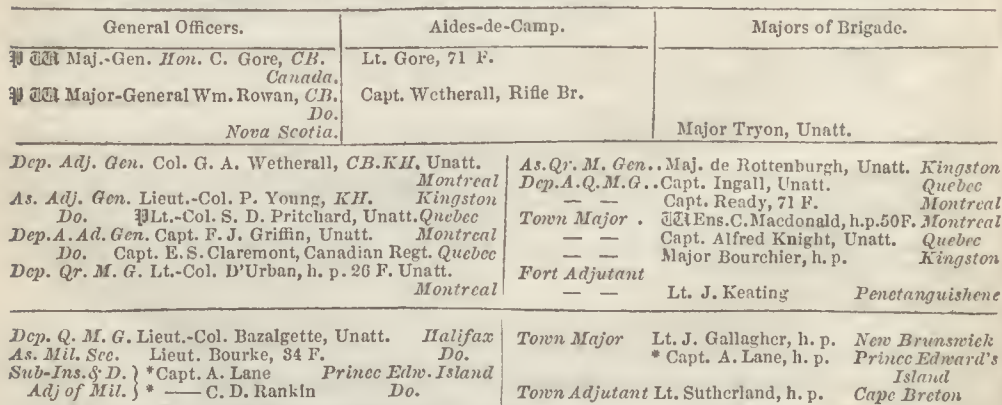 General Officers. Aides-de-Camp. Majors of Brigade.
𝔓 𝔚 Maj.-Gen. Hon. C. Gore, CB. Lt. Gore, 71 F.
Canada.
𝔓 𝔚 Major-General Wm. Rowan, CB. Capt. Wetherall, Rifle Br.
Do.
Nova Scotia. Major Tryon, Unatt.
Dep. Adj. Gen. Col. G. A. Wetherall, CB.KH. Unatt.
Montreal
As. Adj. Gen. Lieut.-Col. P. Young, KH. Kingston
Do. 𝔓Lt.-Col. S. D. Pritchard, Unatt. Quebec
Dep.A. Ad. Gen. Capt. F. J. Griffin, Unatt. Montreal
Do. Capt. E. S. Claremont, Canadian Regt. Quebec
Dep. Qr. M. G. Lt.-Col. D'Urban, h. p. 26 F. Unatt.
Montreal
As.Qr. M. Gen..Maj. de Rottenburgh, Unatt. Kingston
Dep.A.Q.M.G..Capt. Ingall, Unatt. Quebec
— — Capt. Ready, 71 F. Montreal
Town Major . 𝔚Ens.C.Macdonald, h.p.50F. Montreal
— — Capt. Alfred Knight, Unatt. Quebec
— — Major Bourchier, h. p. Kingston
Fort Adjutant
— — Lt. J. Keating Penetanguishene
Dep. Q. M. G. Lieut.-Col. Bazalgette, Unatt. Halifax
As. Mil. Sec. Lieut. Bourke, 34 F. Do.
Sub-Ins. & D. } *Capt. A. Lane Prince Edw. Island
Adj of Mil. } * —— C. D. Rankin Do.
Town Major Lt. J. Gallagher, h. p. New Brunswick
* Capt. A. Lane, h. p. Prince Edward's
Island
Town Adjutant Lt. Sutherland, h. p. Cape Breton